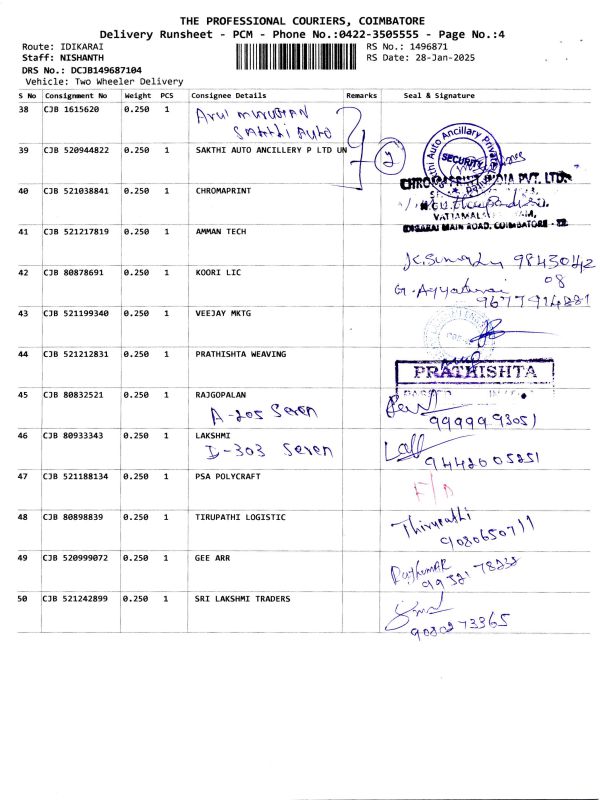 THE PROFESSIONAL COURIERS, COIMBATORE
Delivery Runsheet - PCM - Phone No.:0422-3505555 - Page No.:4
Route: IDIKARAI RS No.: 1496871
Staff: NISHANTH RS Date: 28-Jan-2025
DRS No.: DCJB149687104
Vehicle: Two Wheeler Delivery
S No Consignment No Weight PCS Consignee Details Remarks Seal & Signature
38 CJB 1615620 0.250 1 Arul MURUGAN
Sakthi Auto
39 CJB 520944822 0.250 1 SAKTHI AUTO ANCILLERY P LTD UN 2
Sakthi Auto Ancillary Private
SECURITY
40 CJB 521038841 0.250 1 CHROMAPRINT CHROMAPRINT INDIA PVT. LTD.
IDIGARAI MAIN ROAD, COIMBATORE - 22.
41 CJB 521217819 0.250 1 AMMAN TECH
42 CJB 80878691 0.250 1 KOORI LIC 9843042
08
9677914281
43 CJB 521199340 0.250 1 VEEJAY MKTG
44 CJB 521212831 0.250 1 PRATHISHTA WEAVING PRATHISHTA
45 CJB 80832521 0.250 1 RAJGOPALAN
A-205 Seren 9999993051
46 CJB 80933343 0.250 1 LAKSHMI
I-303 Seren 9442005251
47 CJB 521188134 0.250 1 PSA POLYCRAFT F/D
48 CJB 80898839 0.250 1 TIRUPATHI LOGISTIC Thirupathi
9080650711
49 CJB 520999072 0.250 1 GEE ARR Rajkumar
50 CJB 521242899 0.250 1 SRI LAKSHMI TRADERS